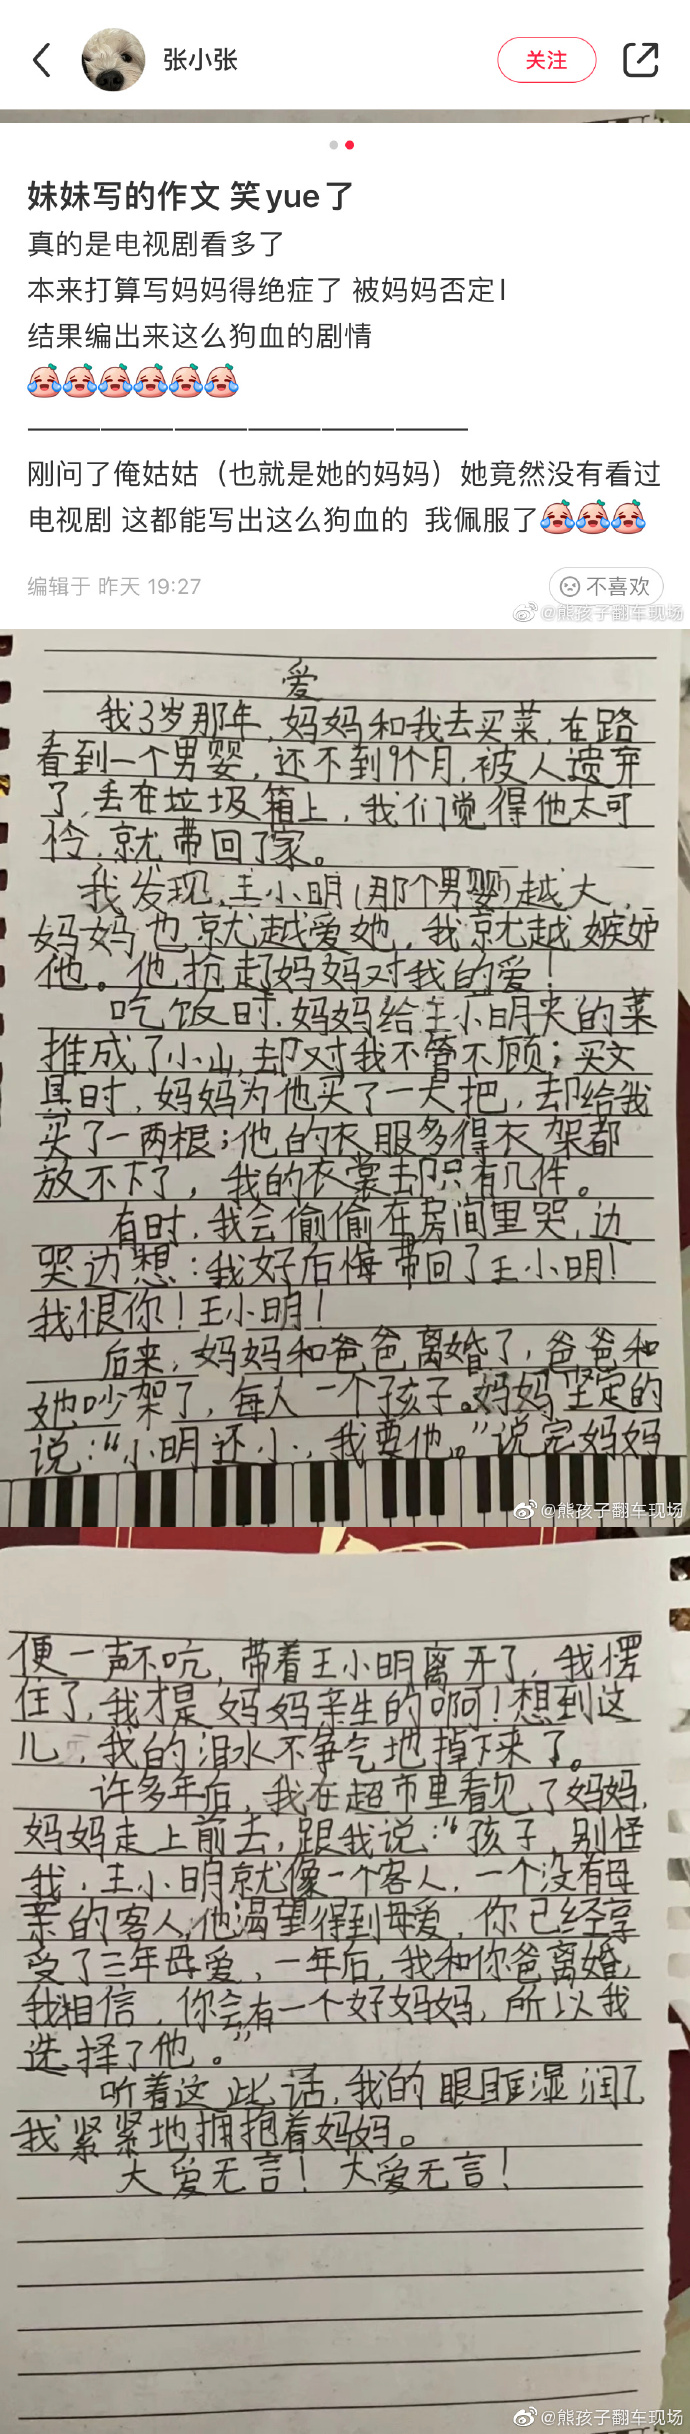 张小张
关注
妹妹写的作文 笑yue了
真的是电视剧看多了
本来打算写妈妈得绝症了 被妈妈否定!
结果编出来这么狗血的剧情
刚问了俺姑姑（也就是她的妈妈）她竟然没有看过
电视剧 这都能写出这么狗血的 我佩服了
编辑于 昨天 19:27
不喜欢
@熊孩子翻车现场
爱
我3岁那年,妈妈和我去买菜,在路
看到一个男婴,还不到9个月,被人遗弃
了,丢在垃圾箱上,我们觉得他太可
怜,就带回了家。
我发现,王小明(那个男婴)越大,
妈妈也就越爱她,我就越嫉妒
他。他抢走妈妈对我的爱!
吃饭时,妈妈给王小明夹的菜
推成了小山,却对我不管不顾;买文
具时,妈妈为他买了一大把,却给我
买了一两根;他的衣服多得衣架都
放不下了,我的衣裳却只有几件。
有时,我会偷偷在房间里哭,边
哭边想:我好后悔带回了王小明!
我恨你!王小明!
后来,妈妈和爸爸离婚了,爸爸和
她吵架了,每人一个孩子。妈妈坚定的
说:“小明还小,我要他。”说完妈妈
@熊孩子翻车现场
便一声不吭,带着王小明离开了,我愣
住了,我才是妈妈亲生的啊!想到这
儿,我的泪水不争气地掉下来了。
许多年后,我在超市里看见了妈妈,
妈妈走上前去,跟我说:“孩子,别怪
我,王小明就像一个客人,一个没有母
亲的客人,他渴望得到母爱,你已经享
受了三年母爱,一年后,我和你爸离婚,
我相信,你会有一个好妈妈,所以我
选择了他。”
听着这些话,我的眼眶湿润了
我紧紧地拥抱着妈妈。
大爱无言!大爱无言!
@熊孩子翻车现场